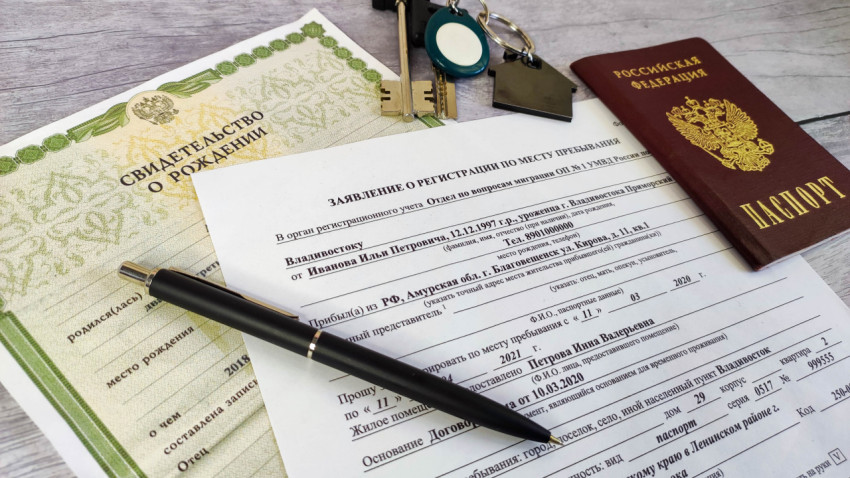 СВИДЕТЕЛЬСТВО
О РОЖДЕНИИ
родился(лась)
место рождения
2018
о чем
составлена запись
Отец
ЗАЯВЛЕНИЕ О РЕГИСТРАЦИИ ПО МЕСТУ ПРЕБЫВАНИЯ
В орган регистрационного учета Отдел по вопросам миграции ОП № 1 УМВД России
Владивостоку
от Иванова Ильи Петровича, 12.12.1997 г.р., уроженца г. Владивостока Приморский
(фамилия, имя, отчество (при наличии), дата рождения,
Тел. 8901000000
место рождения, телефон)
Прибыл(а) из РФ, Амурская обл. г. Благовещенск ул. Кирова, д. 11, кв.1
(указать точный адрес места жительства прибывшего(ей) гражданина(ки))
представитель
(указать: отец, мать, опекун, усыновитель,
Ф.И.О., паспортные данные)
по месту пребывания с « 11 » 03 2020 г.
Прошу
по « 11 » 04 2021 г.
Жилое
Петрова Инна Валерьевна
(Ф.И.О. лица, предоставившего помещение)
Основание Договор от 10.03.2020
являющийся основанием для временного проживания)
поселок, село, иной населенный пункт Владивосток
дом 29 корпус квартира 2
вид паспорт серия 0517 № 999555
краю в Ленинском районе г.
Код 250-0
V
РОССИЙСКАЯ
ФЕДЕРАЦИЯ
ПАСПОРТ